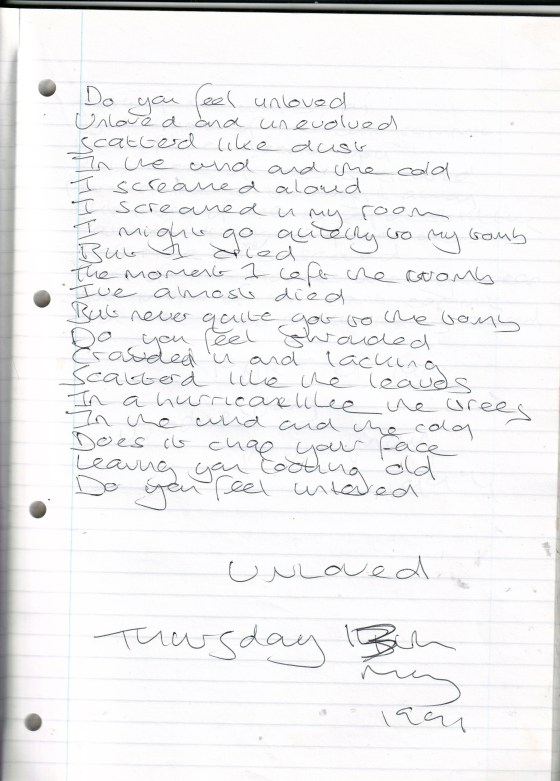 Do you feel unloved
Unloved and unevolved
Scatterd like dust
In the wind and the cold
I screamed aloud
I screamed in my room
I might go quitely to my tomb
But I cried
The moment I left the womb
I've almost died
But never quite got to the tomb
Do you feel shrouded
Crowded in and lacking
Scatterd like the leaves
In a hurricane like the trees
In the wind and the cold
Does it chap your face
Leaving you looking old
Do you feel unloved
Unloved
Thursday
May
1991